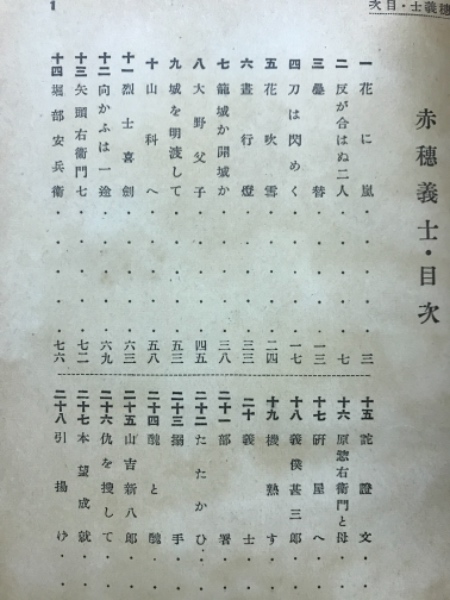 穂義士・目次
1
赤穂義士・目次
一 花に嵐・・・・・三
二 反が合はぬ二人・・・・・七
三 疊替・・・・・一三
四 刀は閃めく・・・・・一七
五 花吹雪・・・・・二四
六 晝行燈・・・・・三三
七 籠城か開城か・・・・・三八
八 大野父子・・・・・四五
九 城を明渡して・・・・・五三
十 山科へ・・・・・五八
十一 烈士喜劍・・・・・六三
十二 向かふは一途・・・・・六九
十三 矢頭右衞門七・・・・・七二
十四 堀部安兵衞・・・・・七六
十五 詫證文・・
十六 原惣右衞門と母・・
十七 研屋へ・・
十八 義僕甚三郎・・
十九 機熟す・・
二十 義士・・
二十一 部署・・
二十二 たたかひ・・
二十三 搦手・・
二十四 醜と醜・・
二十五 山吉新八郎・・
二十六 仇を搜して・・
二十七 本望成就・・
二十八 引揚げ・・